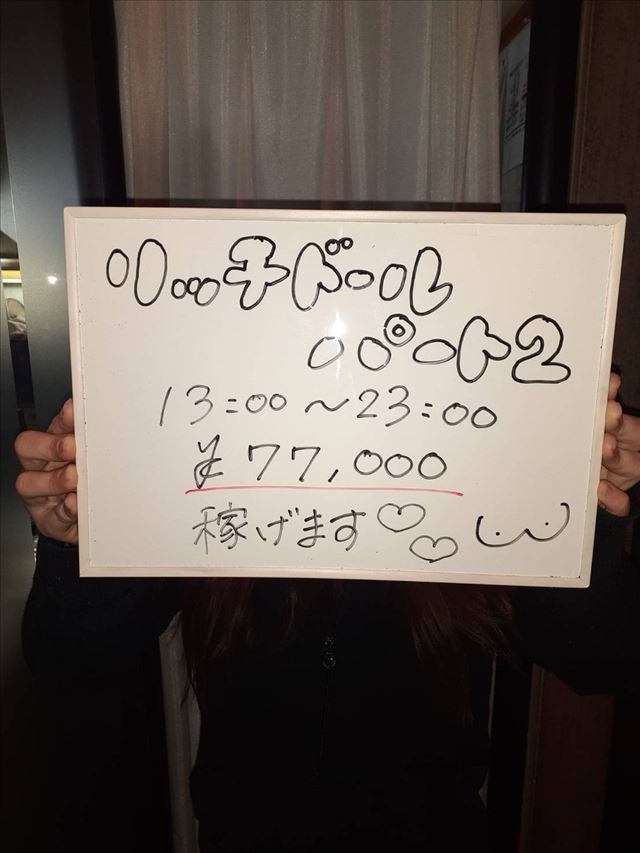 リッチドール
パート2
13:00〜23:00
¥77,000
稼げます♡♡